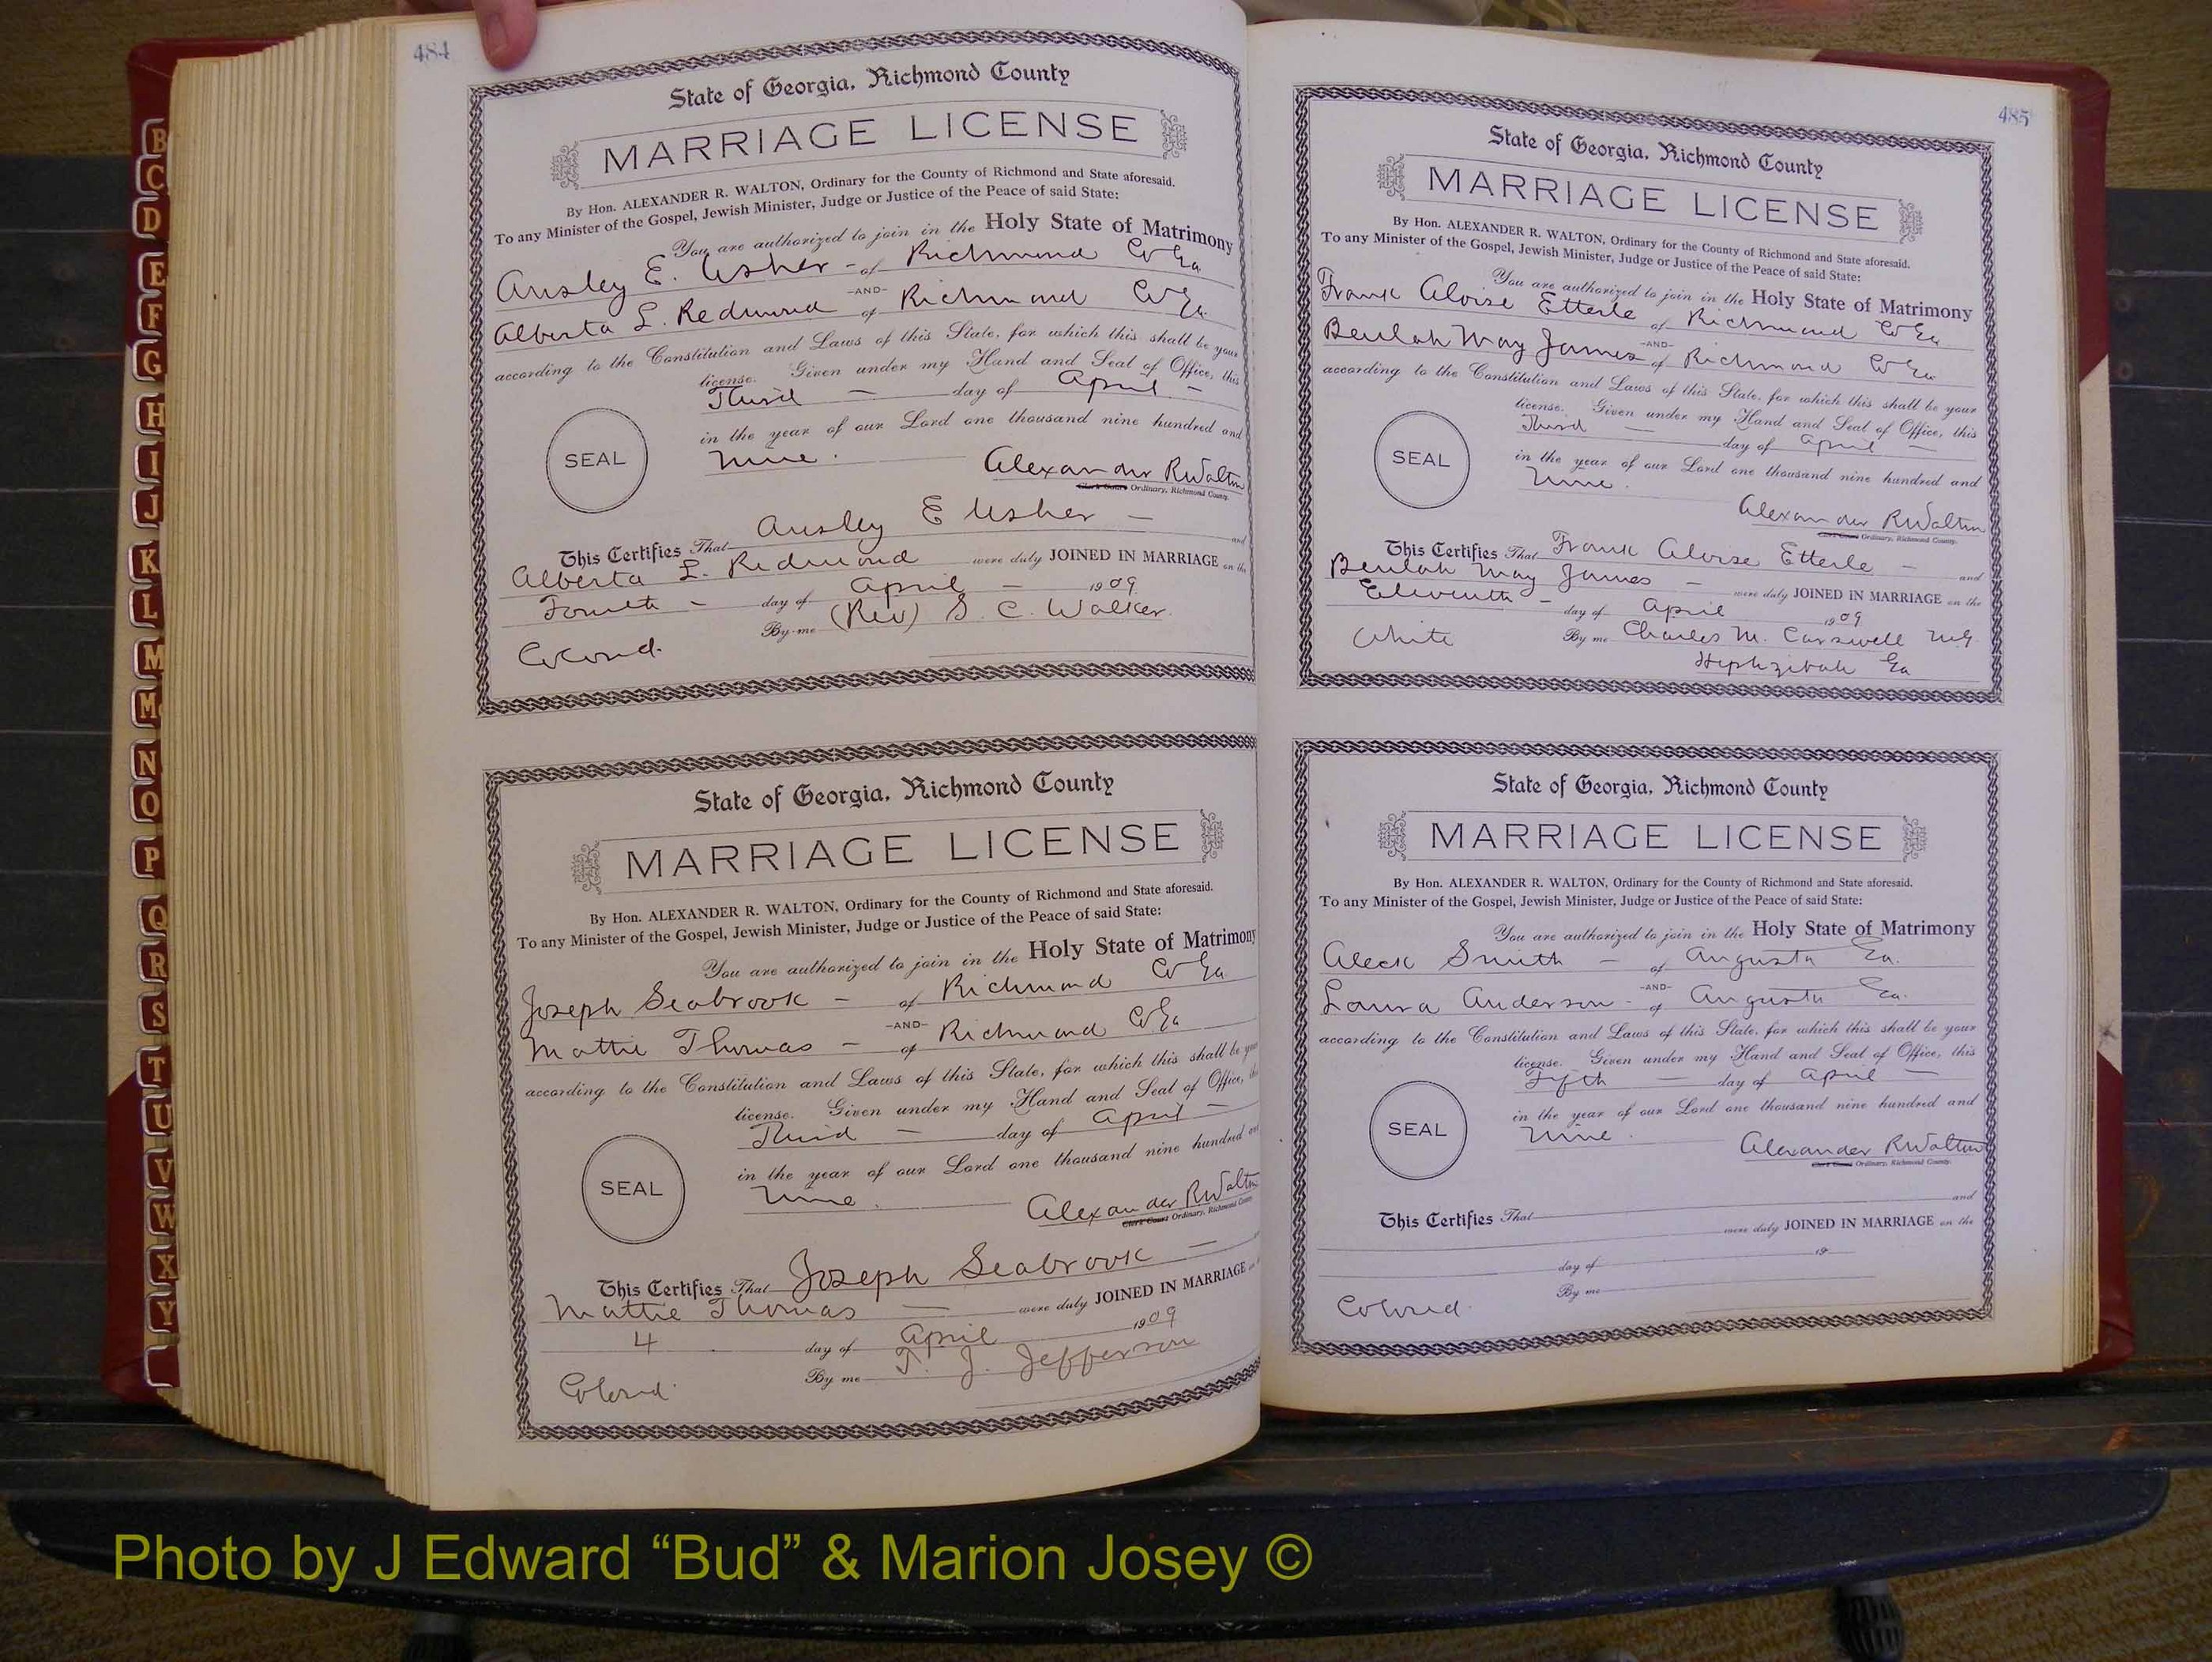 484
State of Georgia, Richmond County
MARRIAGE LICENSE
By Hon. ALEXANDER R. WALTON, Ordinary for the County of Richmond and State aforesaid.
To any Minister of the Gospel, Jewish Minister, Judge or Justice of the Peace of said State:
You are authorized to join in the Holy State of Matrimony
Ansley E. Usher - of Richmond Co Ga
-AND-
Alberta L. Redmond of Richmond Co Ga
according to the Constitution and Laws of this State, for which this shall be your
license. Given under my Hand and Seal of Office, this
Third - day of April -
in the year of our Lord one thousand nine hundred and
SEAL
nine.
Alexander R Walton
Clerk Court Ordinary, Richmond County.
This Certifies That Ansley E Usher - and
Alberta L. Redmond were duly JOINED IN MARRIAGE on the
Fourth - day of April - 1909
By me (Rev) S. C. Walker.
Colored.
State of Georgia, Richmond County
MARRIAGE LICENSE
By Hon. ALEXANDER R. WALTON, Ordinary for the County of Richmond and State aforesaid.
To any Minister of the Gospel, Jewish Minister, Judge or Justice of the Peace of said State:
You are authorized to join in the Holy State of Matrimony
Joseph Seabrook - of Richmond Co Ga
-AND-
Mattie Thomas - of Richmond Co Ga
according to the Constitution and Laws of this State, for which this shall be your
license. Given under my Hand and Seal of Office,
Third - day of April -
in the year of our Lord one thousand nine hundred
SEAL
nine.
Alexander R Walton
Clerk Court Ordinary, Richmond County
This Certifies That Joseph Seabrook -
Mattie Thomas - were duly JOINED IN MARRIAGE
4 day of April 1909
By me T. J. Jefferson
Colored.
485
State of Georgia, Richmond County
MARRIAGE LICENSE
By Hon. ALEXANDER R. WALTON, Ordinary for the County of Richmond and State aforesaid.
To any Minister of the Gospel, Jewish Minister, Judge or Justice of the Peace of said State:
You are authorized to join in the Holy State of Matrimony
Frank Aloise Etterle of Richmond Co Ga
-AND-
Beulah May James of Richmond Co Ga
according to the Constitution and Laws of this State, for which this shall be your
license. Given under my Hand and Seal of Office, this
Third - day of April -
in the year of our Lord one thousand nine hundred and
SEAL
nine.
Alexander R Walton
Clerk Court Ordinary, Richmond County.
This Certifies That Frank Aloise Etterle - and
Beulah May James - were duly JOINED IN MARRIAGE on the
Eleventh - day of April 1909
White
By me Charles M. Carswell M.G.
Hephzibah Ga
State of Georgia, Richmond County
MARRIAGE LICENSE
By Hon. ALEXANDER R. WALTON, Ordinary for the County of Richmond and State aforesaid.
To any Minister of the Gospel, Jewish Minister, Judge or Justice of the Peace of said State:
You are authorized to join in the Holy State of Matrimony
Aleck Smith - of Augusta Ga.
-AND-
Laura Anderson - of Augusta Ga.
according to the Constitution and Laws of this State, for which this shall be your
license. Given under my Hand and Seal of Office, this
Fifth - day of April -
in the year of our Lord one thousand nine hundred and
SEAL
nine.
Alexander R Walton
Clerk Court Ordinary, Richmond County.
This Certifies That and
were duly JOINED IN MARRIAGE on the
day of 19
By me
Colored.
B
C
D
E
F
G
H
I
J
K
L
M
Mc
N
O
P
Q
R
S
T
U
V
W
X
Y
Photo by J Edward “Bud” & Marion Josey ©